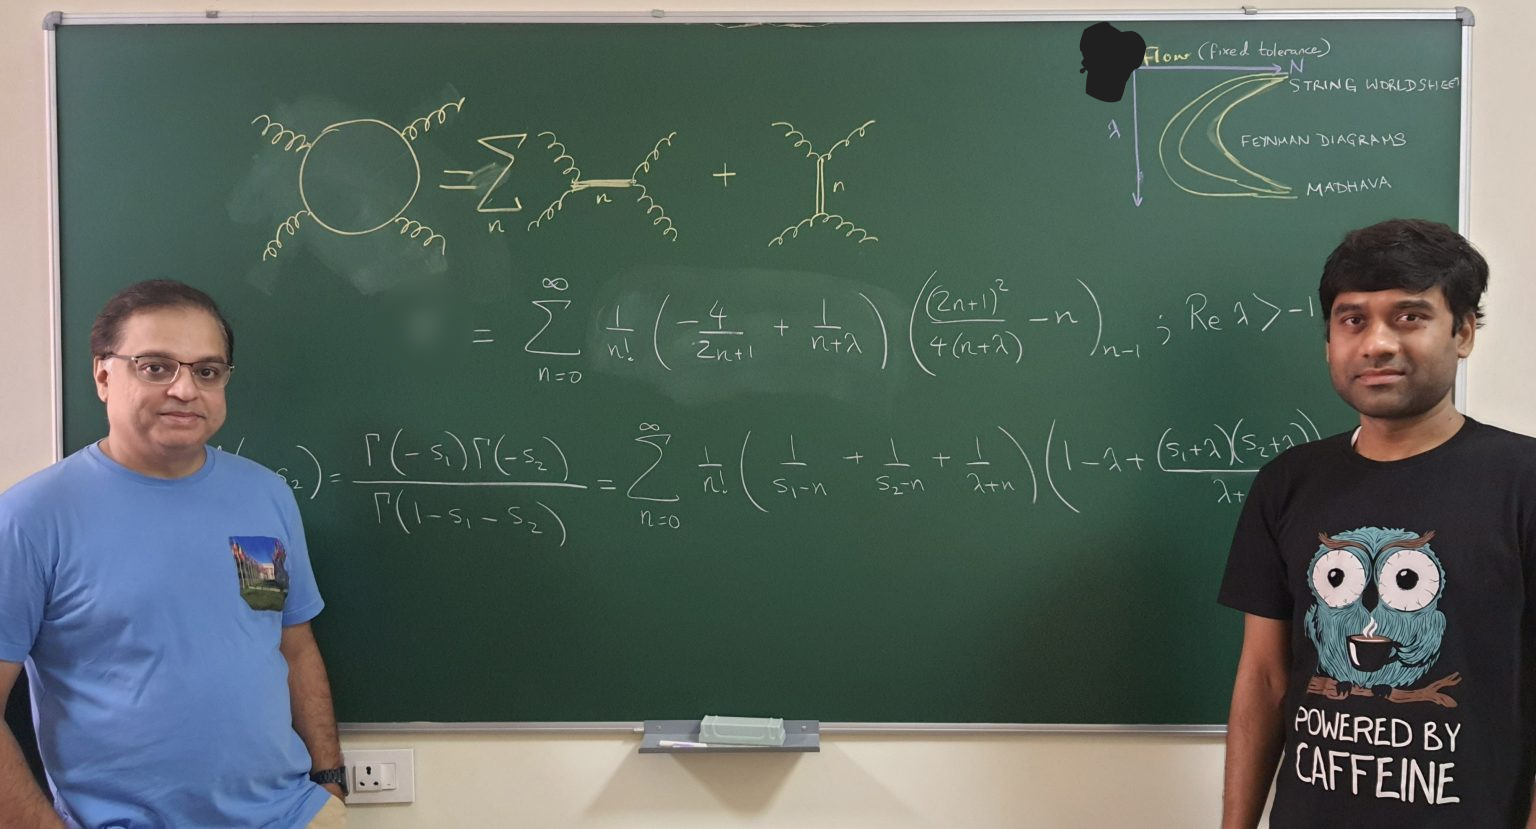 Flow (fixed tolerance)
N
STRING WORLDSHEET
λ
FEYNMAN DIAGRAMS
MADHAVA
= Σ_n n + n
= Σ_{n=0}^{∞} 1/n! (-4/(2n+1) + 1/(n+λ)) ((2n+1)²/(4(n+λ)) - n)_{n-1} ; Re λ > -1
s₂) = Γ(-s₁)Γ(-s₂)/Γ(1-s₁-s₂) = Σ_{n=0}^{∞} 1/n! (1/(s₁-n) + 1/(s₂-n) + 1/(λ+n)) (1-λ+ (s₁+λ)(s₂+λ)/λ+
POWERED BY
CAFFEINE